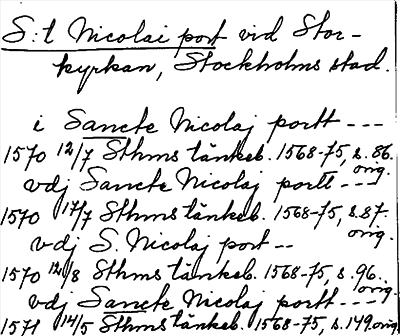 S:t Nicolai port vid Stor-
kyrkan, Stockholms stad.
i Sancte Nicolaj portt ---
1570 12/7 Sthms tänkeb. 1568-75, s. 86.
orig.
vdj Sancte Nicolaj portt ---
1570 17/7 Sthms tänkeb. 1568-75, s. 87.
orig.
vdj S. Nicolaj port --
1570 12/8 Sthms tänkeb. 1568-75, s. 96.
orig.
vdj Sancte Nicolaj portt ---
1571 14/5 Sthms tänkeb. 1568-75, s. 149 orig.